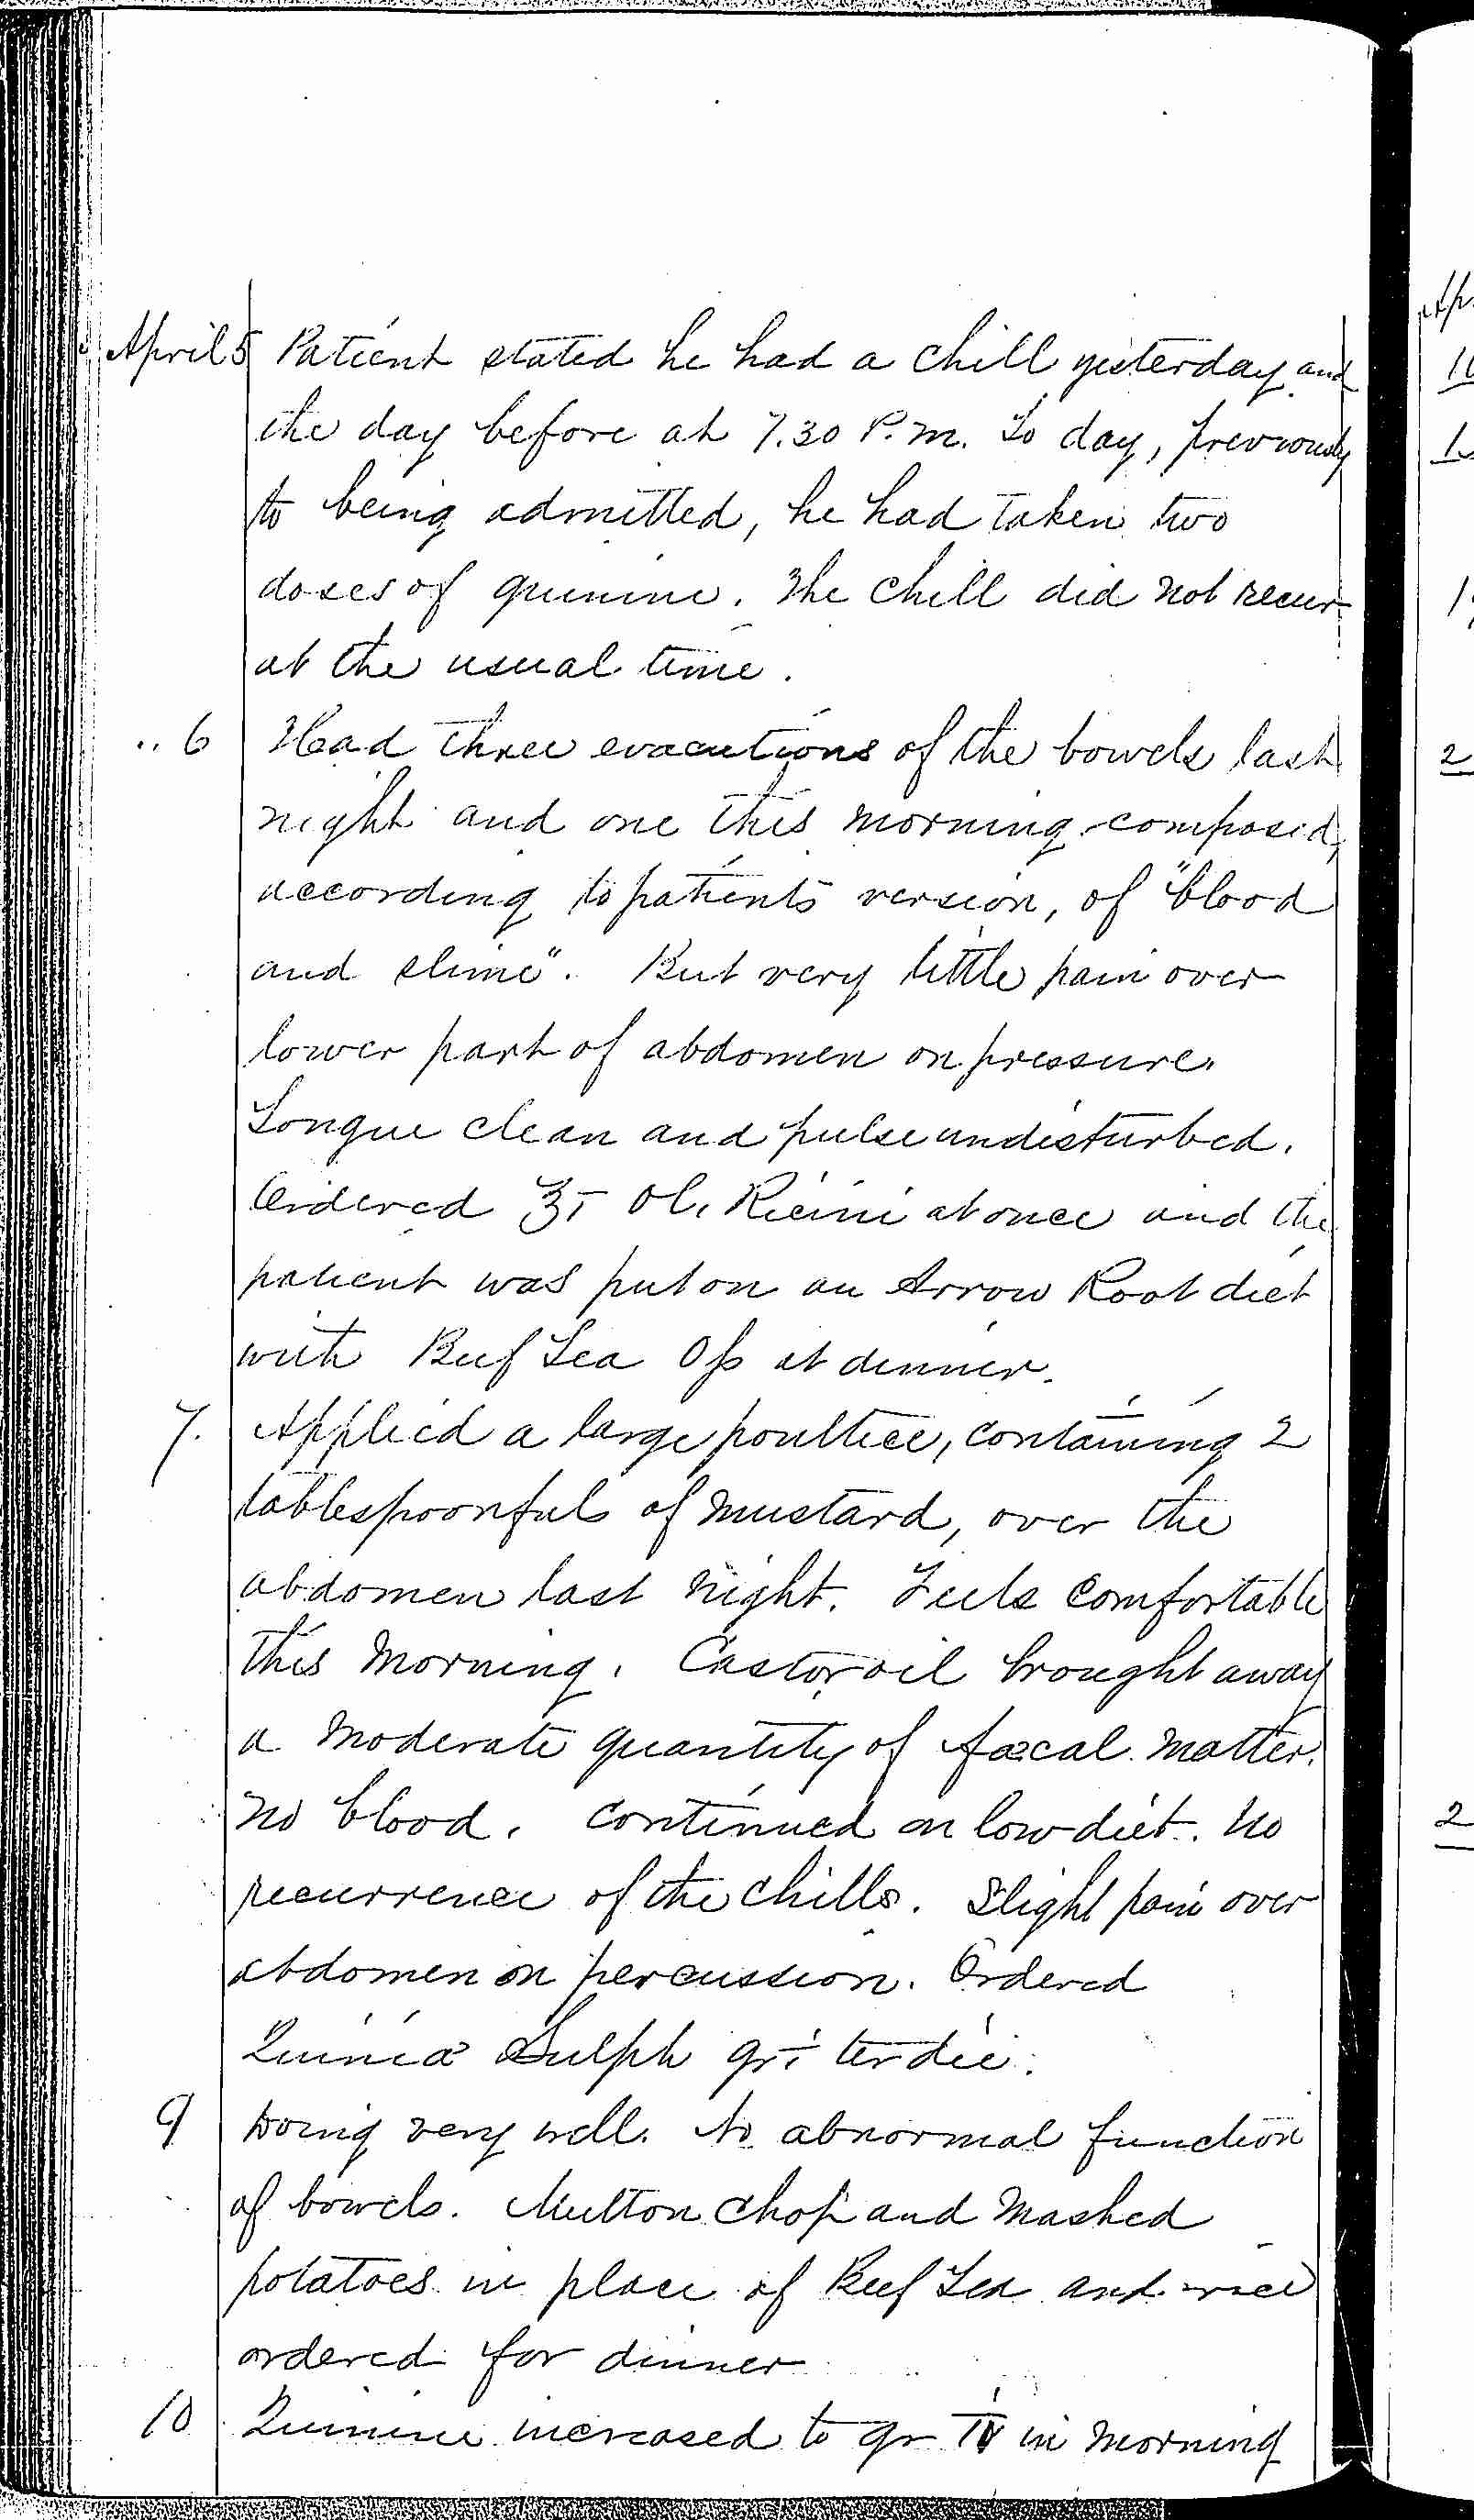 April 5 Patient stated he had a chill yesterday and
the day before at 7.30 P.M. To day, previously
to being admitted, he had taken two
doses of quinine. The chill did not recur
at the usual time.
.. 6 Had three evacutions of the bowels last
night and one this morning composed,
according to patients version, of "blood
and slime". But very little pain over
lower part of abdomen on pressure.
Tongue clean and pulse undisturbed.
Ordered ℥i Ol. Ricini at once and the
patient was put on an Arrow Root diet
with Beef Tea Oß at dinner.
7. Applied a large poultice, containing 2
tablespoonfuls of mustard, over the
abdomen last night. Feels comfortable
this morning. Castor oil brought away
a moderate quantity of fæcal matter.
no blood. Continued on low diet. No
recurrence of the chills. Slight pain over
abdomen on percussion. Ordered
Quiniæ Sulph gr i ter die.
9 Doing very well. No abnormal function
of bowels. Mutton chop and mashed
potatoes in place of Beef Tea and rice
ordered for dinner
10 Quinine increased to gr IV in morning